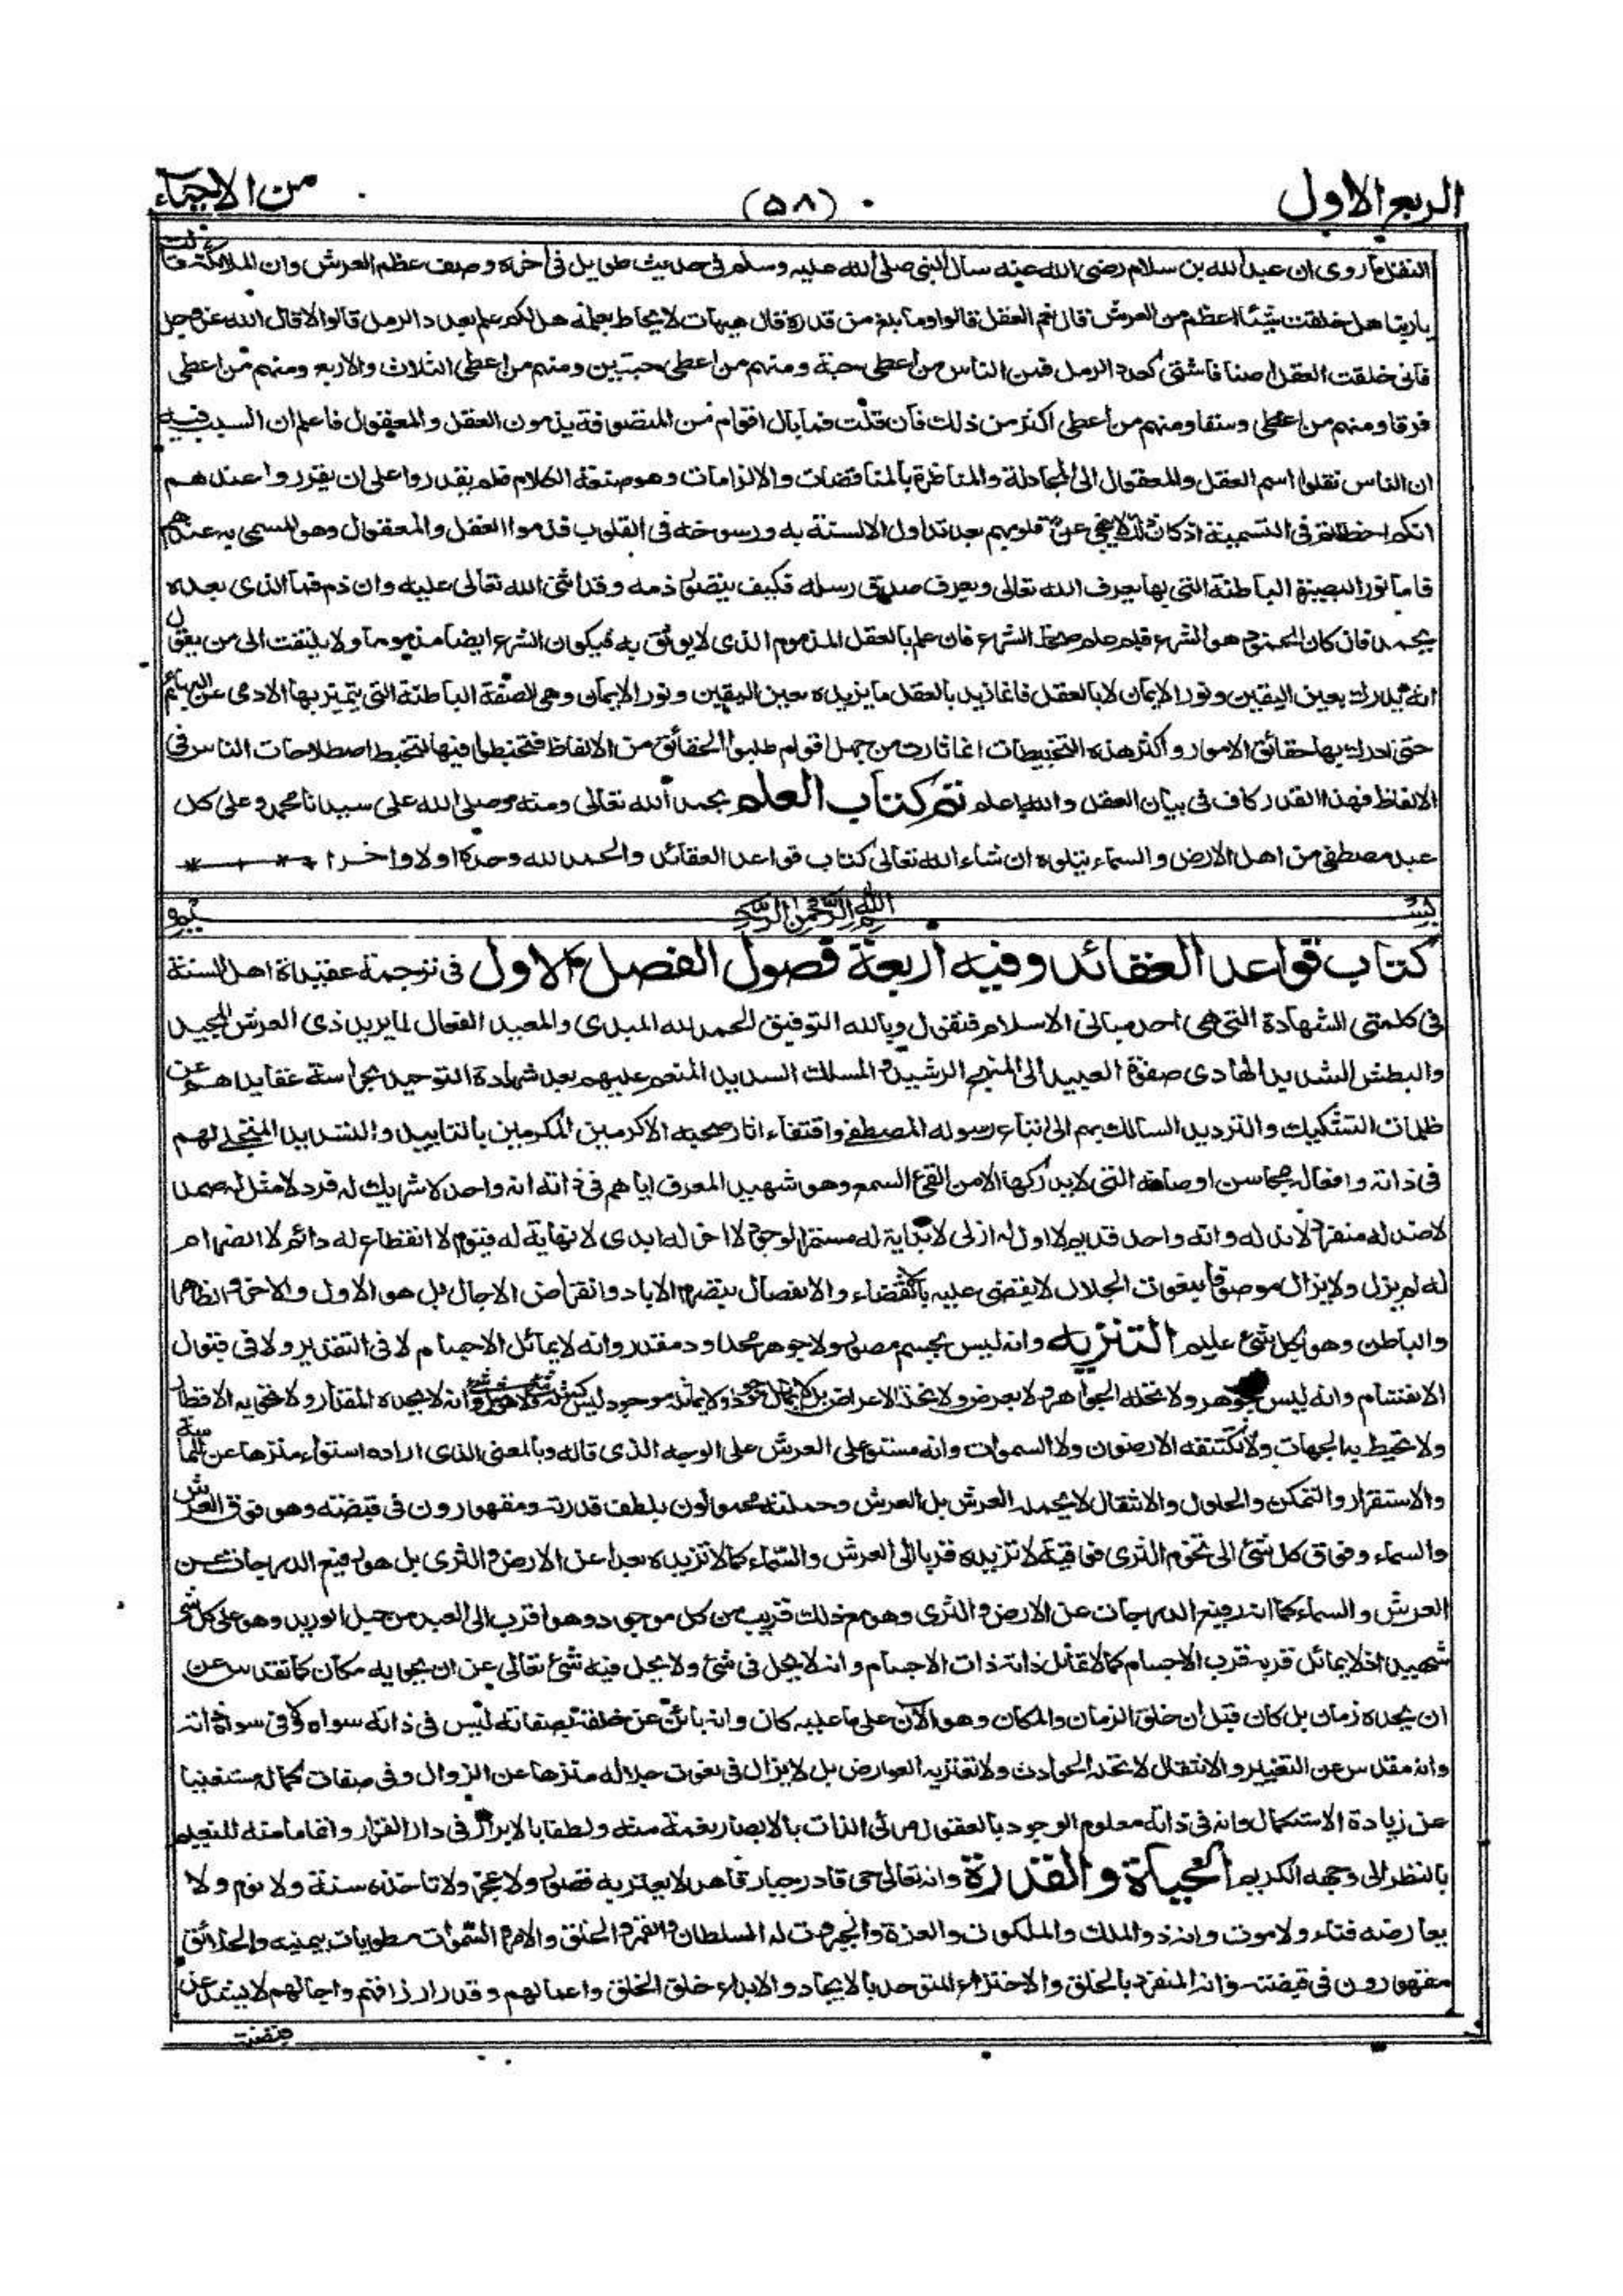 الربع الاول
(۵۸)
من الاحياء
النقل ما روى ان عبد الله بن سلام رضى الله عنه سال النبى صلى الله عليه وسلم فى حديث طويل فى اخره وصف عظم العرش وان الملائكة قالت
يا ربنا هل خلقت شيئا اعظم من العرش قال نعم العقل قالوا وما بلغ من قدره قال هيهات لا يحاط بعلمه هل لكم علم بعدد الرمل قالوا لا قال الله عز وجل
فانى خلقت العقل اصنافا شتى كعدد الرمل فمن الناس من اعطى حبة ومنهم من اعطى حبتين ومنهم من اعطى الثلاث والاربع ومنهم من اعطى
فرقا ومنهم من اعطى وسقا ومنهم من اعطى اكثر من ذلك فان قلت فما بال اقوام من المتصوفة يذمون العقل والمعقول فاعلم ان السبب فيه
ان الناس نقلوا اسم العقل والمعقول الى المجادلة والمناظرة بالمناقضات والالزامات وهو صنعة الكلام فلم يقدروا على ان يقرروا عندهم
انكم اخطاتم فى التسمية اذ كان ذلك لا ينمحى عن قلوبهم بعد تداول الالسنة به ورسوخه فى القلوب فذموا العقل والمعقول وهو المسمى به عندهم
فاما نور البصيرة الباطنة التى بها يعرف الله تعالى ويعرف صدق رسله فكيف يتصور ذمه وقد اثنى الله تعالى عليه وان ذم فما الذى بعده
يحمد فان كان المحمود هو الشرع فبم علم صحة الشرع فان علم بالعقل المذموم الذى لا يوثق به فيكون الشرع ايضا مذموما ولا يلتفت الى من يقول
انه يدرك بعين اليقين ونور الايمان لا بالعقل فانا نريد بالعقل ما يريده بعين اليقين ونور الايمان وهى الصفة الباطنة التى يتميز بها الادمى عن البهائم
حتى ادرك بها حقائق الامور واكثر هذه التخبيطات انما ثارت من جهل اقوام طلبوا الحقائق من الالفاظ فتخبطوا فيها لتخبط اصطلاحات الناس فى
الالفاظ فهذا القدر كاف فى بيان العقل والله اعلم تم كتاب العلم بحمد الله تعالى ومنه وصلى الله على سيدنا محمد وعلى كل
عبد مصطفى من اهل الارض والسماء يتلوه ان شاء الله تعالى كتاب قواعد العقائد والحمد لله وحده اولا واخرا
بسم الله الرحمن الرحيم
كتاب قواعد العقائد وفيه اربعة فصول الفصل الاول فى ترجمة عقيدة اهل السنة
فى كلمتى الشهادة التى هى احد مبانى الاسلام فنقول وبالله التوفيق الحمد لله المبدى والمعيد الفعال لما يريد ذى العرش المجيد
والبطش الشديد الهادى صفوة العبيد الى المنهج الرشيد والمسلك السديد المنعم عليهم بعد شهادة التوحيد بحراسة عقايدهم عن
ظلمات التشكيك والترديد السالك بهم الى اتباع رسوله المصطفى واقتفاء اثار صحبه الاكرمين المكرمين بالتاييد والتسديد المتجلى لهم
فى ذاته وافعاله بمحاسن اوصافه التى لا يدركها الا من القى السمع وهو شهيد المعرف اياهم فى ذاته انه واحد لا شريك له فرد لا مثل له صمد
لا ضد له منفرد لا ند له وانه واحد قديم لا اول له ازلى لا بداية له مستمر الوجود لا اخر له ابدى لا نهاية له قيوم لا انقطاع له دائم لا انصرام
له لم يزل ولا يزال موصوفا بنعوت الجلال لا يقضى عليه بالانقضاء والانفصال بتصرم الاباد وانقراض الاجال بل هو الاول والاخر والظاهر
والباطن وهو بكل شئ عليم التنزيه وانه ليس بجسم مصور ولا جوهر محدود مقدر وانه لا يماثل الاجسام لا فى التقدير ولا فى قبول
الانقسام وانه ليس بجوهر ولا تحله الجواهر ولا بعرض ولا تحله الاعراض بل لا يماثل موجودا ولا يماثله موجود ليس كمثله شئ ولا هو مثل شئ وانه لا يحده المقدار ولا تحويه الاقطار
ولا تحيط به الجهات ولا تكتنفه الارضون ولا السموات وانه مستو على العرش على الوجه الذى قاله وبالمعنى الذى اراده استواء منزها عن المماسة
والاستقرار والتمكن والحلول والانتقال لا يحمله العرش بل العرش وحملته محمولون بلطف قدرته ومقهورون فى قبضته وهو فوق العرش
والسماء وفوق كل شئ الى تخوم الثرى فوقية لا تزيده قربا الى العرش والسماء كما لا تزيده بعدا عن الارض والثرى بل هو رفيع الدرجات عن
العرش والسماء كما انه رفيع الدرجات عن الارض والثرى وهو مع ذلك قريب من كل موجود وهو اقرب الى العبد من حبل الوريد وهو على كل شئ
شهيد اذ لا يماثل قربه قرب الاجسام كما لا تماثل ذاته ذات الاجسام وانه لا يحل فى شئ ولا يحل فيه شئ تعالى عن ان يحويه مكان كما تقدس عن
ان يحده زمان بل كان قبل ان خلق الزمان والمكان وهو الآن على ما عليه كان وانه بائن عن خلقه بصفاته ليس فى ذاته سواه ولا فى سواه ذاته
وانه مقدس عن التغيير والانتقال لا تحله الحوادث ولا تعتريه العوارض بل لا يزال فى نعوت جلاله منزها عن الزوال وفى صفات كماله مستغنيا
عن زيادة الاستكمال وانه فى ذاته معلوم الوجود بالعقول مرئى الذات بالابصار نعمة منه ولطفا بالابرار فى دار القرار واتماما منه للنعيم
بالنظر الى وجهه الكريم الحياة والقدرة وانه تعالى حى قادر جبار قاهر لا يعتريه قصور ولا عجز ولا تاخذه سنة ولا نوم ولا
يعارضه فناء ولا موت وانه ذو الملك والملكوت والعزة والجبروت له السلطان والقهر والخلق والامر والسموات مطويات بيمينه والخلائق
مقهورون فى قبضته وانه المنفرد بالخلق والاختراع المتوحد بالايجاد والابداع خلق الخلق واعمالهم وقدر ارزاقهم واجالهم لا يشذ عن
قبضته